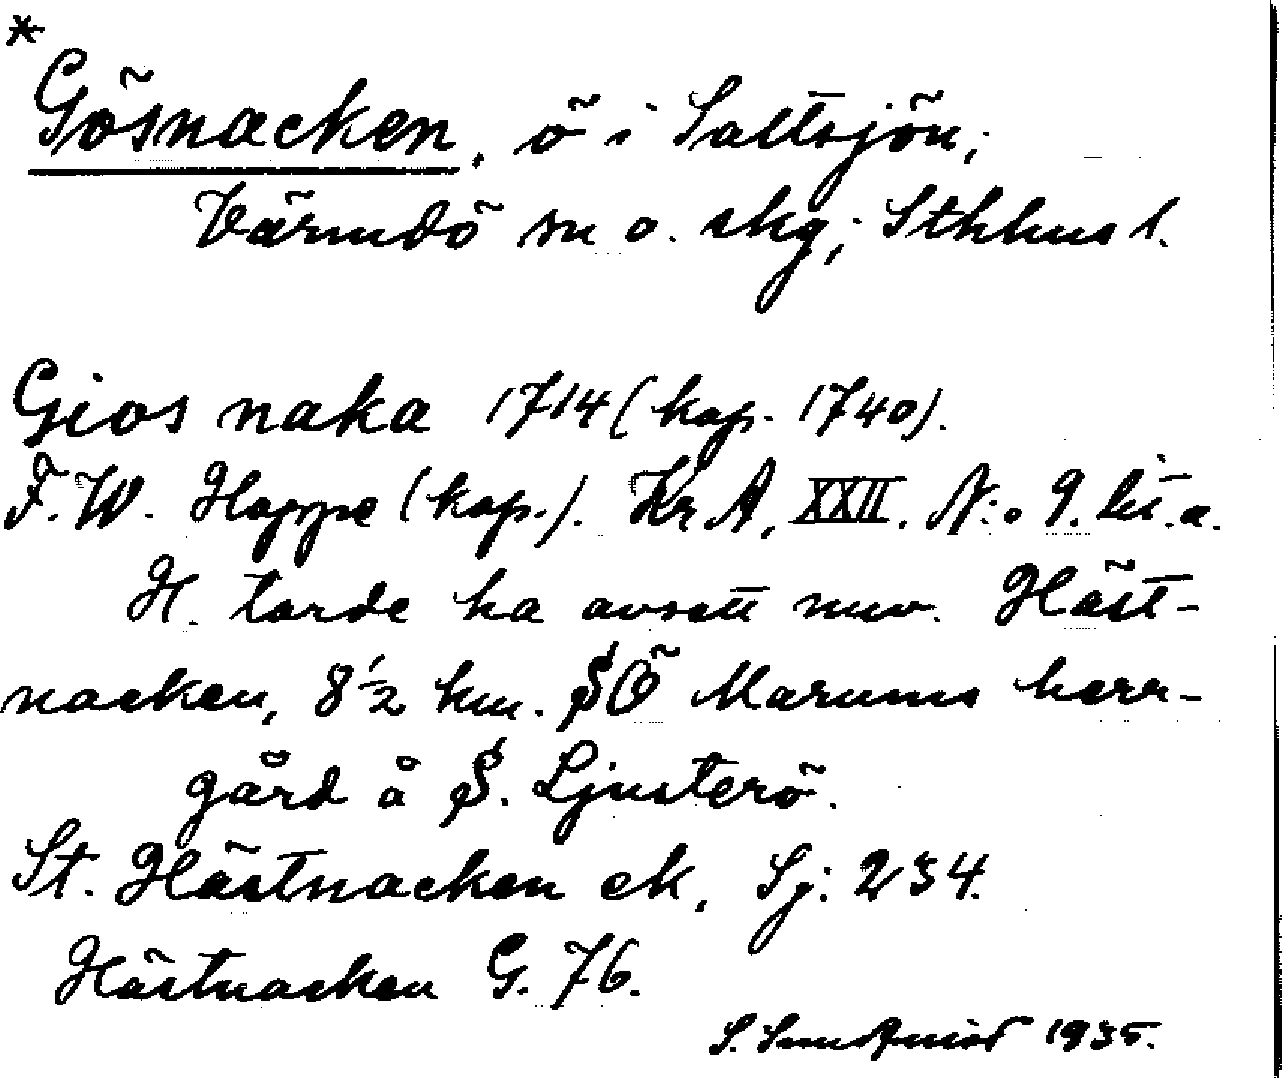 *
Gösnacken, ö i Saltsjön;
Värmdö sn o. skg; Sthhns l.
Gios naka 1714 (kop. 1740).
F. W. Hoppe (kop.). Kr A, XXII. N:o 9. lit. a.
H. torde ha avsett nuv. Häst-
nacken, 8 1/2 km. SÖ Marums herr-
gård å S. Ljusterö.
St. Hästnacken ek, Sj: 234.
Hästnacken G. 76.
S. 1935.